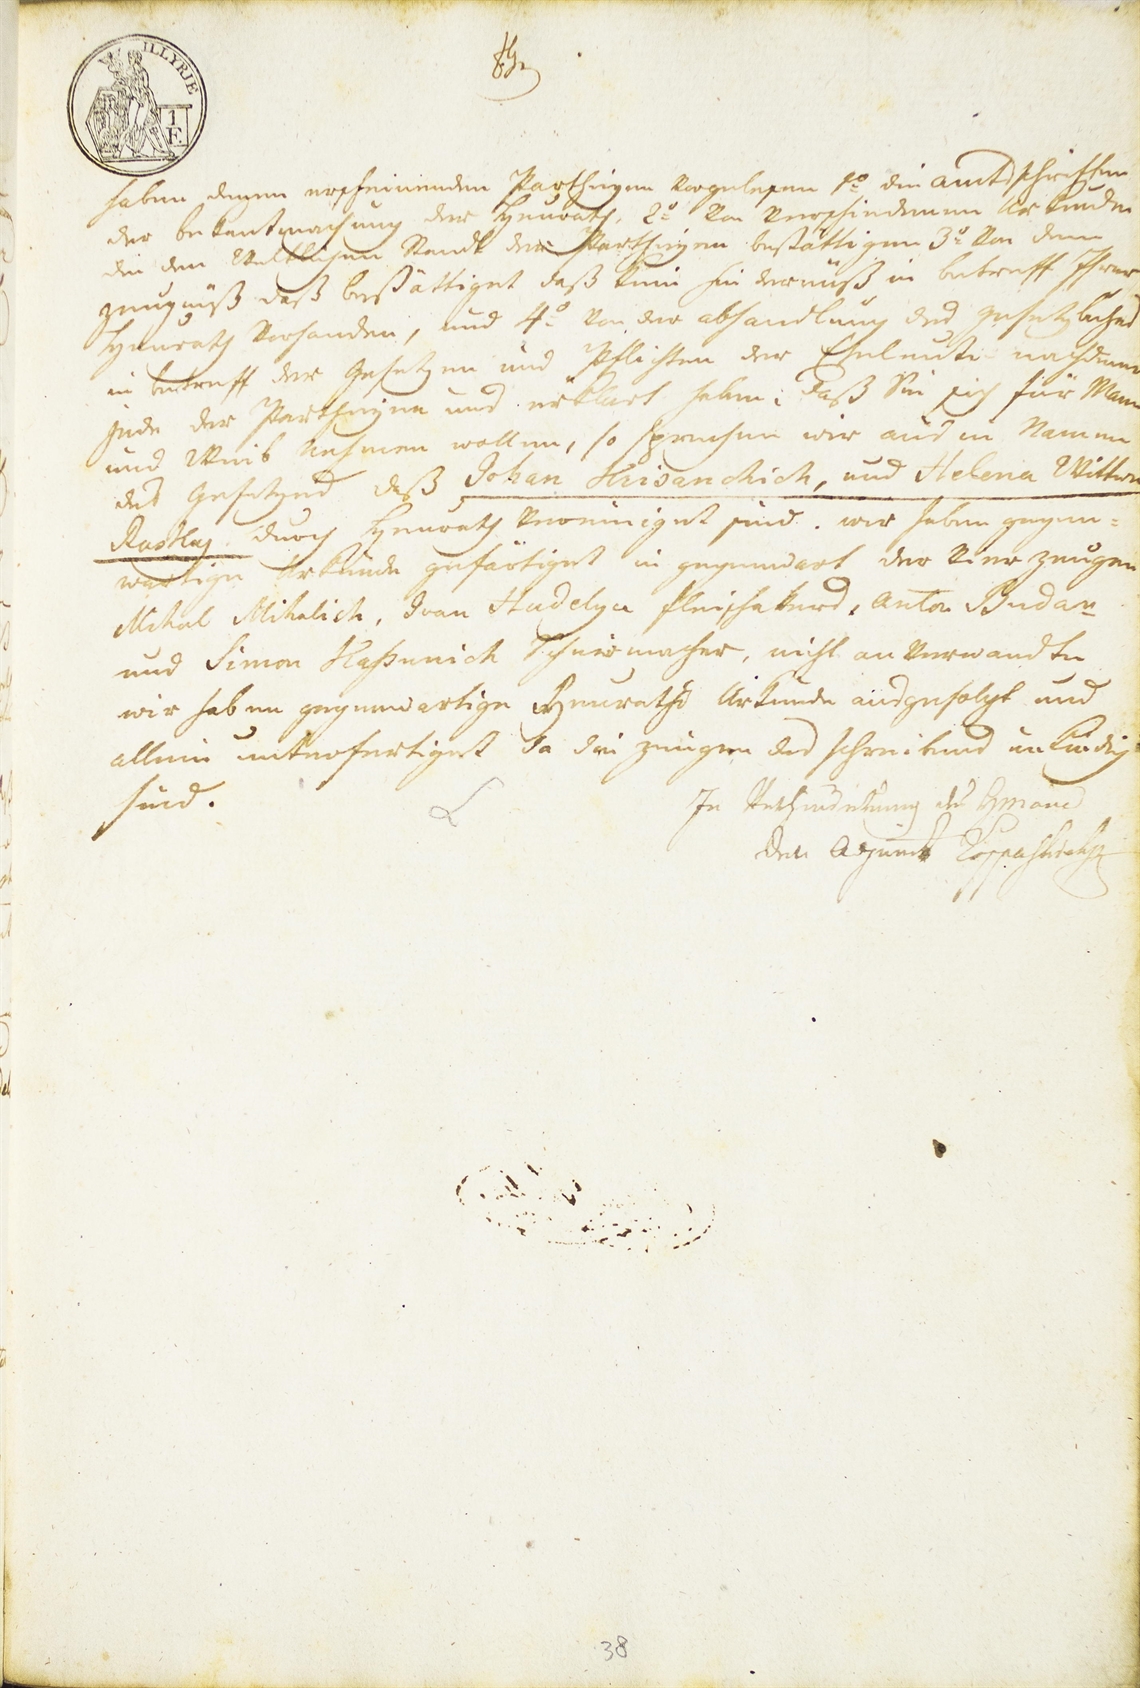 ILLYRIE
1
F.
haben denen erscheinenden Partheyen vorgelesen 1º die amtsschriften
der bekantmachung der Heurath, 2º von verschiedenen Urkunden
die den Weltlichen Standt der Partheyen bestättigen 3º von dem
zeugnüß daß bestättiget daß kein hindernüß in betreff Ihrer
Heurath vorhanden, und 4º von der abhandlung des gesetzbuches
in betreff der Gesetzen und Pflichten der Eheleute nachdeme
jede der Partheyen und erklärt haben, daß Sie sich für Mann
und Weib nehmen wollen, so sprechen wir aus in Namen
des Gesetzes daß Johan Krisanchich, und Helena Wittwe
durch Heurath vereiniget sind. wir haben gegen=
wärtige Urkunde gefärtiget in gegenwart der vier zeugen
Mihal Mihalich, Ivan Hudelya fleischakers, Anton Budan
und Simon schumacher, nicht anverwandte
wir haben gegenwartige Heuraths Urkunde ausgefolgt und
allein unterfertiget da die zeugen des schreibens unkündig
sind.
In Verhinderung des
Der Adjunct
38